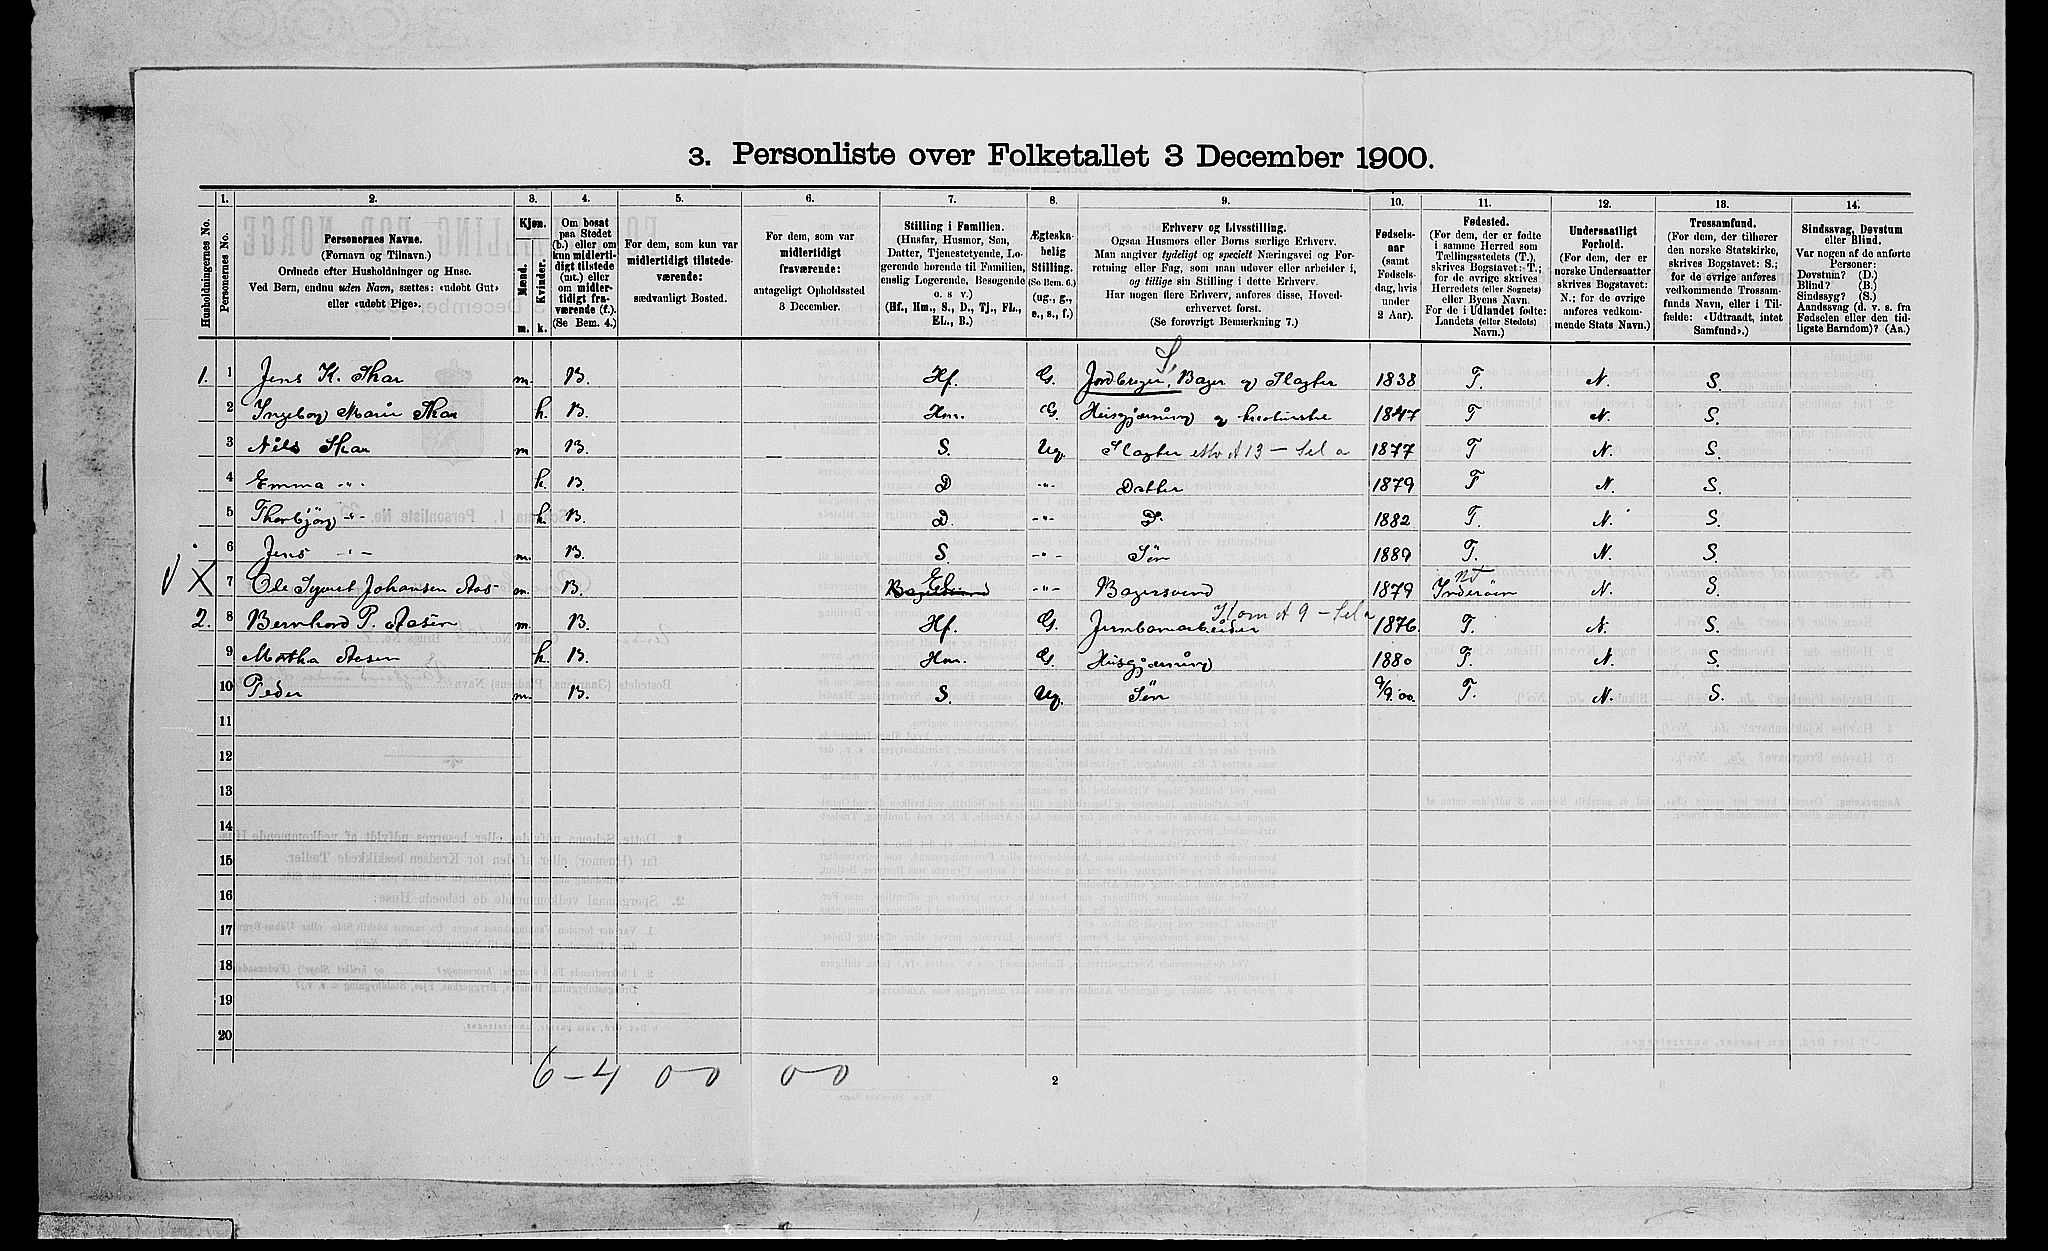 3. Personliste over Folketallet 3 December 1900.
Husholdningernes No.
1. Personernes No.
2. Personernes Navne.
(Fornavn og Tilnavn.)
Ordnede efter Husholdninger og Huse.
Ved Børn, endnu uden Navn, sættes: «udøbt Gut»
eller «udøbt Pige».
3. Kjøn.
Mænd. m.
Kvinder. k.
4. Om bosat
paa Stedet
(b.) eller om
kun midlerti-
digt tilstede
(mt.) eller
om midler-
tidigt fra-
værende (f.).
(Se Bem. 4.)
5. For dem, som kun var
midlertidigt tilstede-
værende:
sædvanligt Bosted.
6. For dem, som var
midlertidigt
fraværende:
antageligt Opholdssted
3 December.
7. Stilling i Familien.
(Husfar, Husmor, Søn,
Datter, Tjenestetyende, Lo-
gerende hørende til Familien,
enslig Logerende, Besøgende
o. s v.)
(Hf., Hm., S., D., Tj., FL.,
EL., B.)
8. Ægteska-
belig
Stilling.
(So Bem. 6.)
(ug., g.,
e., s., f.)
9. Erhverv og Livsstilling.
Ogsaa Husmors eller Børns særlige Erhverv.
Man angiver tydeligt og specielt Næringsvei og For-
retning eller Fag, som man udøver eller arbeider i,
og tillige sin Stilling i dette Erhverv.
Har nogen flere Erhverv, anføres disse, Hoved-
erhvervet først.
(Se forøvrigt Bemærkning 7.)
10. Fødsels-
aar
(samt
Fødsels-
dag, hvis
under
2 Aar).
11. Fødested.
(For dem, der er fødte
i samme Herred som
Tællingsstedets (T.),
skrives Bogstavet: T.;
for de øvrige skrives
Herredets (eller Sognets)
eller Byens Navn.
For de i Udlandet fødte:
Landets (eller Stedets)
Navn.)
12. Undersaatligt
Forhold.
(For dem, der er
norske Undersaatter
skrives Bogstavet:
N.; for de øvrige
anføres vedkom-
mende Stats Navn.)
13. Trossamfund.
(For dem, der tilhører
den norske Statskirke,
skrives Bogstavet: S.;
for de øvrige anføres
vedkommende Trossam-
funds Navn, eller i Til-
fælde: «Udtraadt, intet
Samfund».)
14. Sindssvag, Døvstum
eller Blind.
Var nogen af de anførte
Personer:
Døvstum? (D.)
Blind? (B.)
Sindssyg? (S.)
Aandssvag (d. v. s. fra
Fødselen eller den tid-
ligste Barndom)? (Aa.)
1. 1 Jens K. Skar m. B. Hf. G. Jordbruger, Bager og Slagter 1838 T. N. S.
2 Ingeborg Marie Skar k. B. Hm. G. Husgjerning og kreaturstel 1847 T N. S.
3 Nils Skar m B. S. Ug. Slagter 1877 T N. S.
4 Emma -"- k. B. D -"- Datter 1879 T N. S.
5 Thorbjörg -"- k. B. D. -"- D. 1882 T. N. S.
6 Jens -"- m. B. S. -"- Søn 1889 T. N. S.
X 7 Ole Johansen Aas m. B. El. -"- Bagersvend 1879 Inderöen N. S.
2. 8 Bernhard P. Aasen m. B. Hf. G. Jernbanearbeider 1876. T. N. S.
9 Martha Aasen k. B. Hm. G. Husgjerning 1880 T. N. S.
10 Peder m. B. S. Ug. Søn 9/9.00. T. N. S.
11
12
13
14
15
16
17
18
19
20
6 – 4 0 0 0 0
2